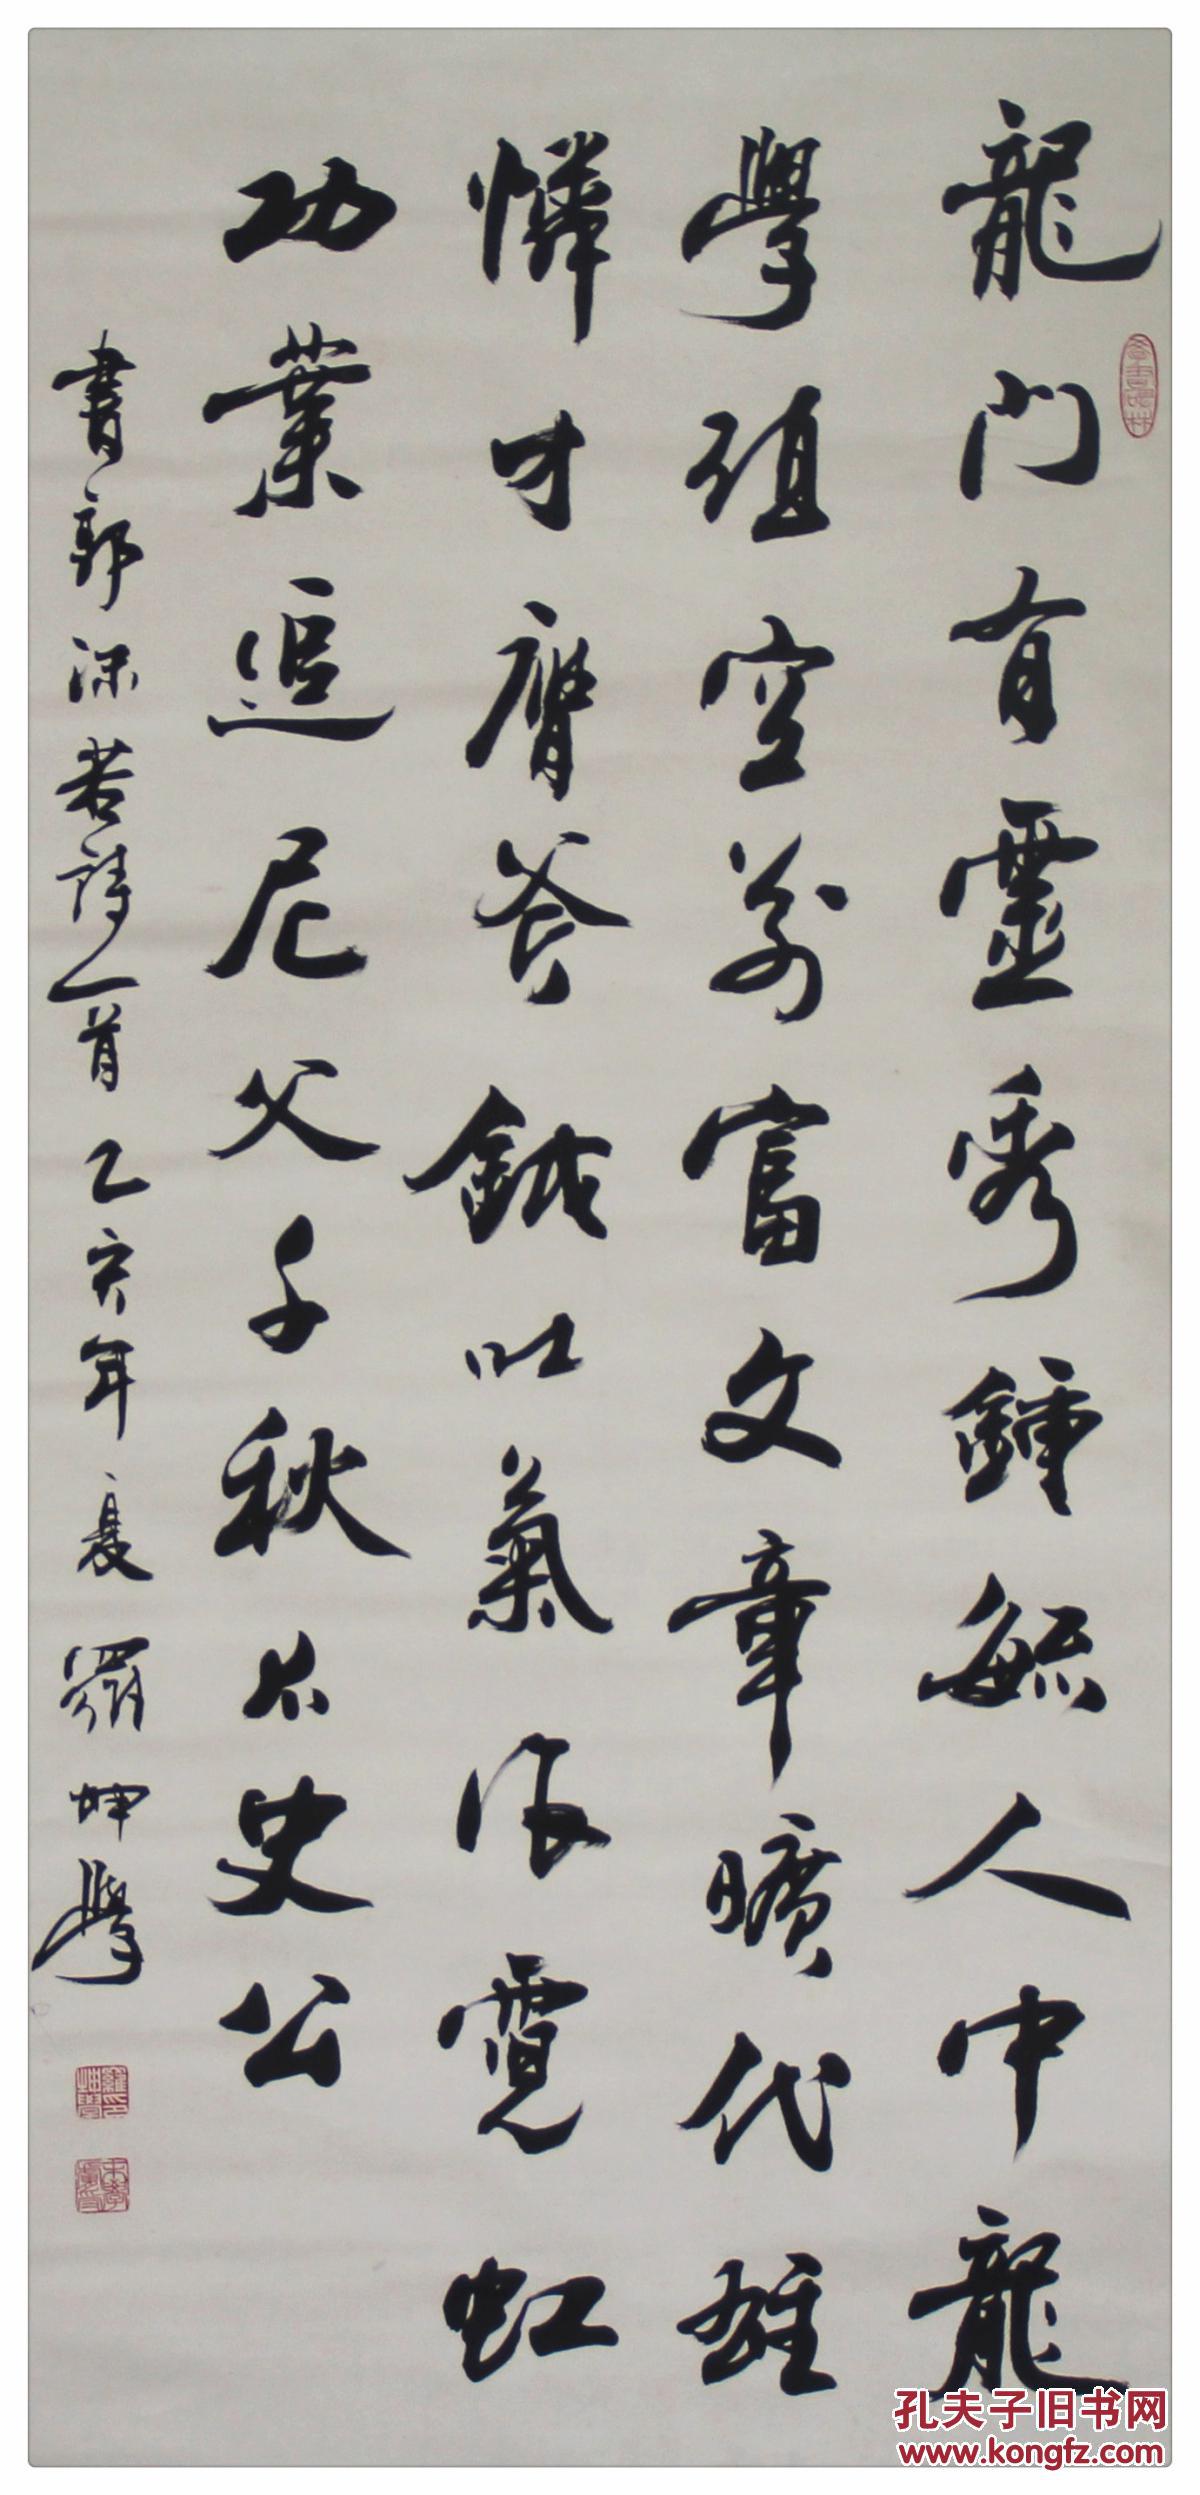 龍門有靈秀鍾毓人中龍
學殖空前富文章曠代雄
憐才膺斧鉞吐氣作霓虹
功業追尼父千秋太史公
書郭沫若詩一首乙亥年夏羅坤學
羅坤學印
孔夫子旧书网
www.kongfz.com